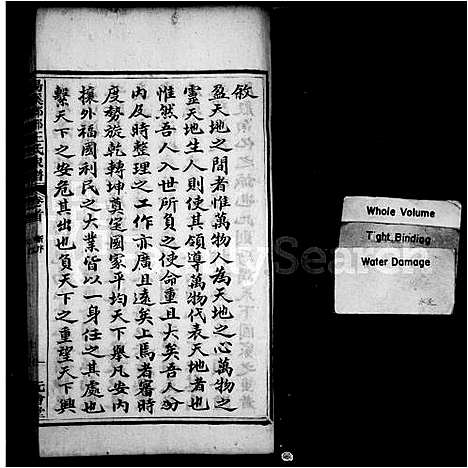 敘
盈天地之間者惟萬物人為天地之心萬物之
靈天地生人則使其領導萬物代表天地者也
惟然吾人入世所負之使命重且大矣吾人分
內及時整理之工作亦廣且遠矣上焉者審時
度勢旋乾轉坤奠定國家平均天下舉凡安內
攘外福國利民之大業皆以一身任之其處也
繫天下之安危其出也負天下之重望天下興
Whole Volume
Tight Binding
Water Damage